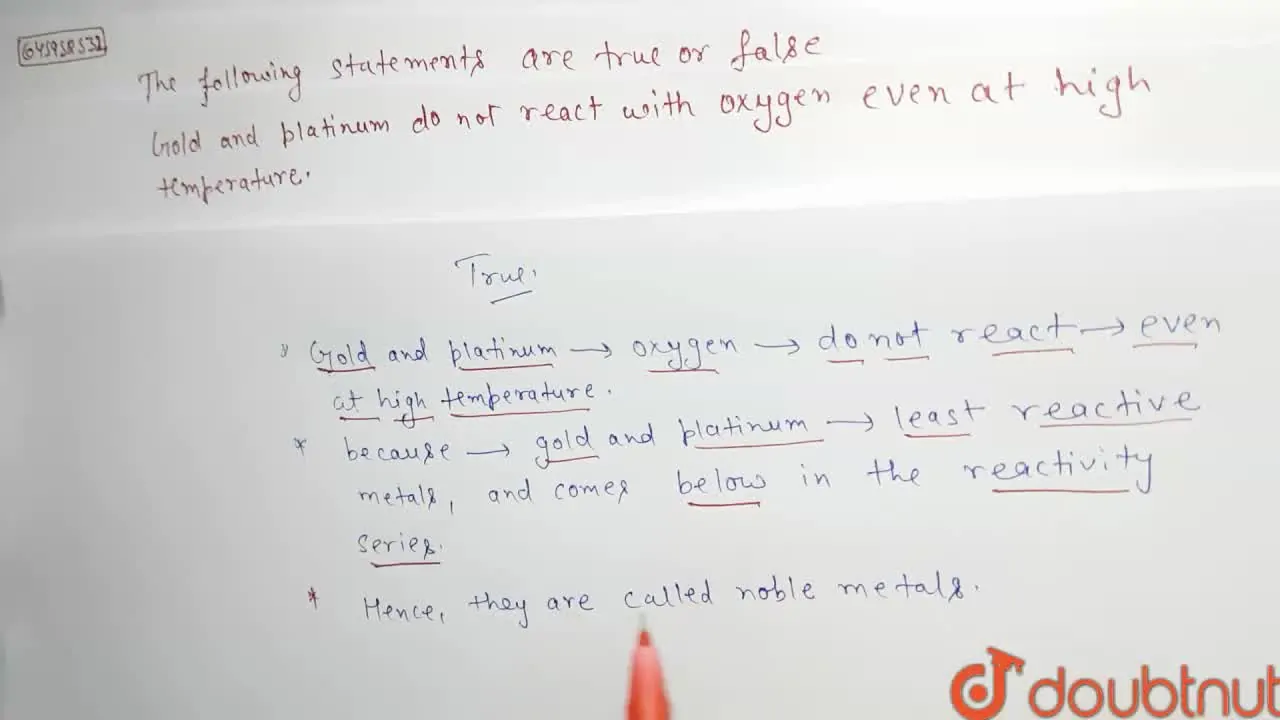 645958532
The following statements are true or false
Gold and platinum do not react with oxygen even at high
temperature.
True.
* Gold and platinum → oxygen → do not react → even
at high temperature.
* because → gold and platinum → least reactive
metals, and comes below in the reactivity
series.
* Hence, they are called noble metals.
doubtnut